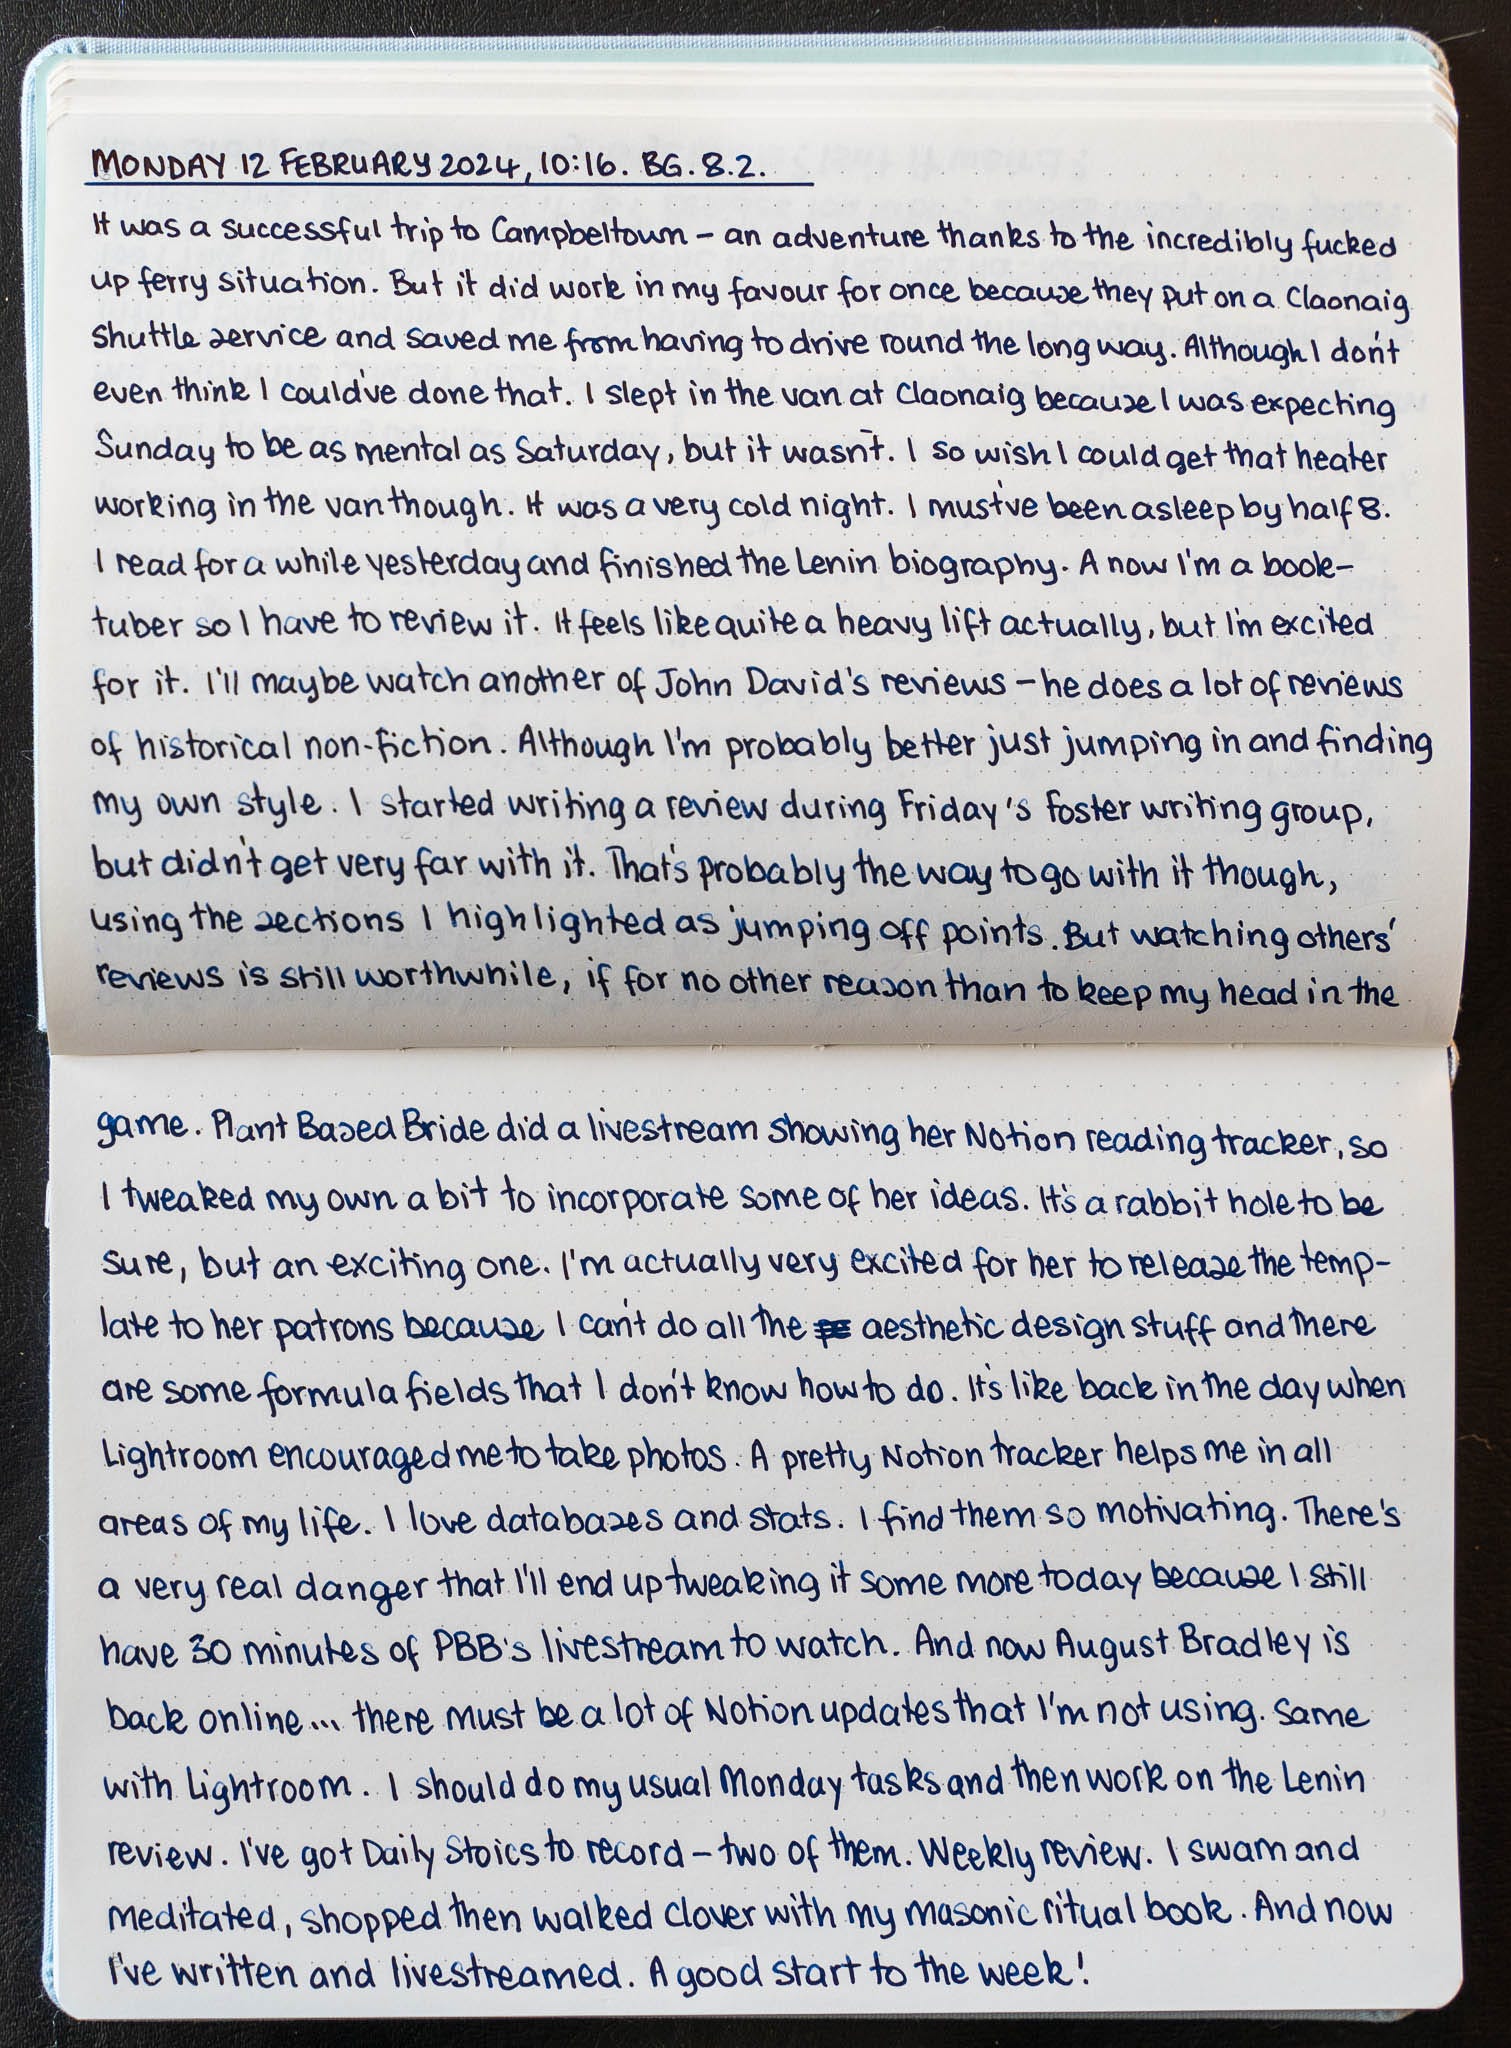 MONDAY 12 FEBRUARY 2024, 10:16. BG. 8.2.
It was a successful trip to Campbeltown – an adventure thanks to the incredibly fucked
up ferry situation. But it did work in my favour for once because they put on a Claonaig
shuttle service and saved me from having to drive round the long way. Although I don't
even think I could've done that. I slept in the van at Claonaig because I was expecting
Sunday to be as mental as Saturday, but it wasn't. I so wish I could get that heater
working in the van though. It was a very cold night. I must've been asleep by half 8.
I read for a while yesterday and finished the Lenin biography. A now I'm a book-
tuber so I have to review it. It feels like quite a heavy lift actually, but I'm excited
for it. I'll maybe watch another of John David's reviews – he does a lot of reviews
of historical non-fiction. Although I'm probably better just jumping in and finding
my own style. I started writing a review during Friday's Foster writing group,
but didn't get very far with it. That's probably the way to go with it though,
using the sections I highlighted as jumping off points. But watching others'
reviews is still worthwhile, if for no other reason than to keep my head in the
game. Plant Based Bride did a livestream showing her Notion reading tracker, so
I tweaked my own a bit to incorporate some of her ideas. It's a rabbit hole to be
sure, but an exciting one. I'm actually very excited for her to release the temp-
late to her patrons because I can't do all the aesthetic design stuff and there
are some formula fields that I don't know how to do. It's like back in the day when
Lightroom encouraged me to take photos. A pretty Notion tracker helps me in all
areas of my life. I love databases and stats. I find them so motivating. There's
a very real danger that I'll end up tweaking it some more today because I still
have 30 minutes of PBB's livestream to watch. And now August Bradley is
back online... there must be a lot of Notion updates that I'm not using. Same
with Lightroom. I should do my usual Monday tasks and then work on the Lenin
review. I've got Daily Stoics to record – two of them. Weekly review. I swam and
meditated, shopped then walked Clover with my masonic ritual book. And now
I've written and livestreamed. A good start to the week!